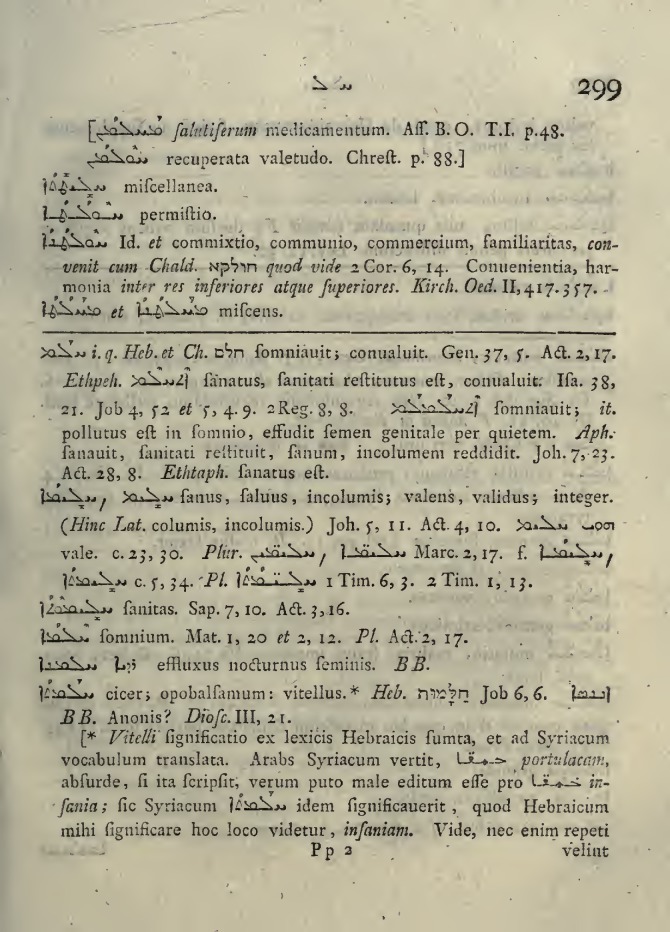 ܚ ܠ 299
[ܡܚܠܡܢ ſalutiferum medicamentum. Aſſ. B. O. T.I. p.48.
ܚܘܠܡܢ recuperata valetudo. Chreſt. p. 88.]
miſcellanea.
ܚܘܠܛܢܐ permiſtio.
Id. et commixtio, communio, commercium, familiaritas, con-
venit cum Chald. חולקא quod vide 2 Cor. 6, 14. Conuenientia, har-
monia inter res inferiores atque ſuperiores. Kirch. Oed. II, 417. 357.
et miſcens.
ܚܠܡ i. q. Heb. et Ch. חלם ſomniauit; conualuit. Gen. 37, 5. Act. 2, 17.
Ethpeh. ܐܬܚܠܡ ſanatus, ſanitati reſtitutus eſt, conualuit. Iſa. 38,
21. Job 4, 52 et 5, 4. 9. 2 Reg. 8, 8. ſomniauit; it.
pollutus eſt in ſomnio, effudit ſemen genitale per quietem. Aph.
ſanauit, ſanitati reſtituit, ſanum, incolumem reddidit. Joh. 7, 23.
Act. 28, 8. Ethtaph. ſanatus eſt.
ܚܠܝܡܐ, ܚܠܝܡ ſanus, ſaluus, incolumis; valens, validus; integer.
(Hinc Lat. columis, incolumis.) Joh. 5, 11. Act. 4, 10. ܗܘܝ ܚܠܝܡ
vale. c. 23, 30. Plur. ܚܠܝܡܝܢ, ܚܠܝܡܐ Marc. 2, 17. f. ܚܠܝܡܐ,
ܚܠܝܡܬܐ c. 5, 34. Pl. ܚܠܝܡܬܐ 1 Tim. 6, 3. 2 Tim. 1, 13.
ܚܠܝܡܘܬܐ ſanitas. Sap. 7, 10. Act. 3, 16.
ܚܠܡܐ ſomnium. Mat. 1, 20 et 2, 12. Pl. Act. 2, 17.
effluxus nocturnus ſeminis. BB.
ܚܠܡܬܐ cicer; opobalſamum: vitellus.* Heb. חַלָּמוּת Job 6, 6.
BB. Anonis? Dioſc. III, 21.
[* Vitelli ſignificatio ex lexicis Hebraicis ſumta, et ad Syriacum
vocabulum translata. Arabs Syriacum vertit, حمقا portulacam,
abſurde, ſi ita ſcripſit, verum puto male editum eſſe pro in-
ſania; ſic Syriacum ܚܠܡܬܐ idem ſignificauerit, quod Hebraicum
mihi ſignificare hoc loco videtur, inſaniam. Vide, nec enim repeti
Pp 2 velint